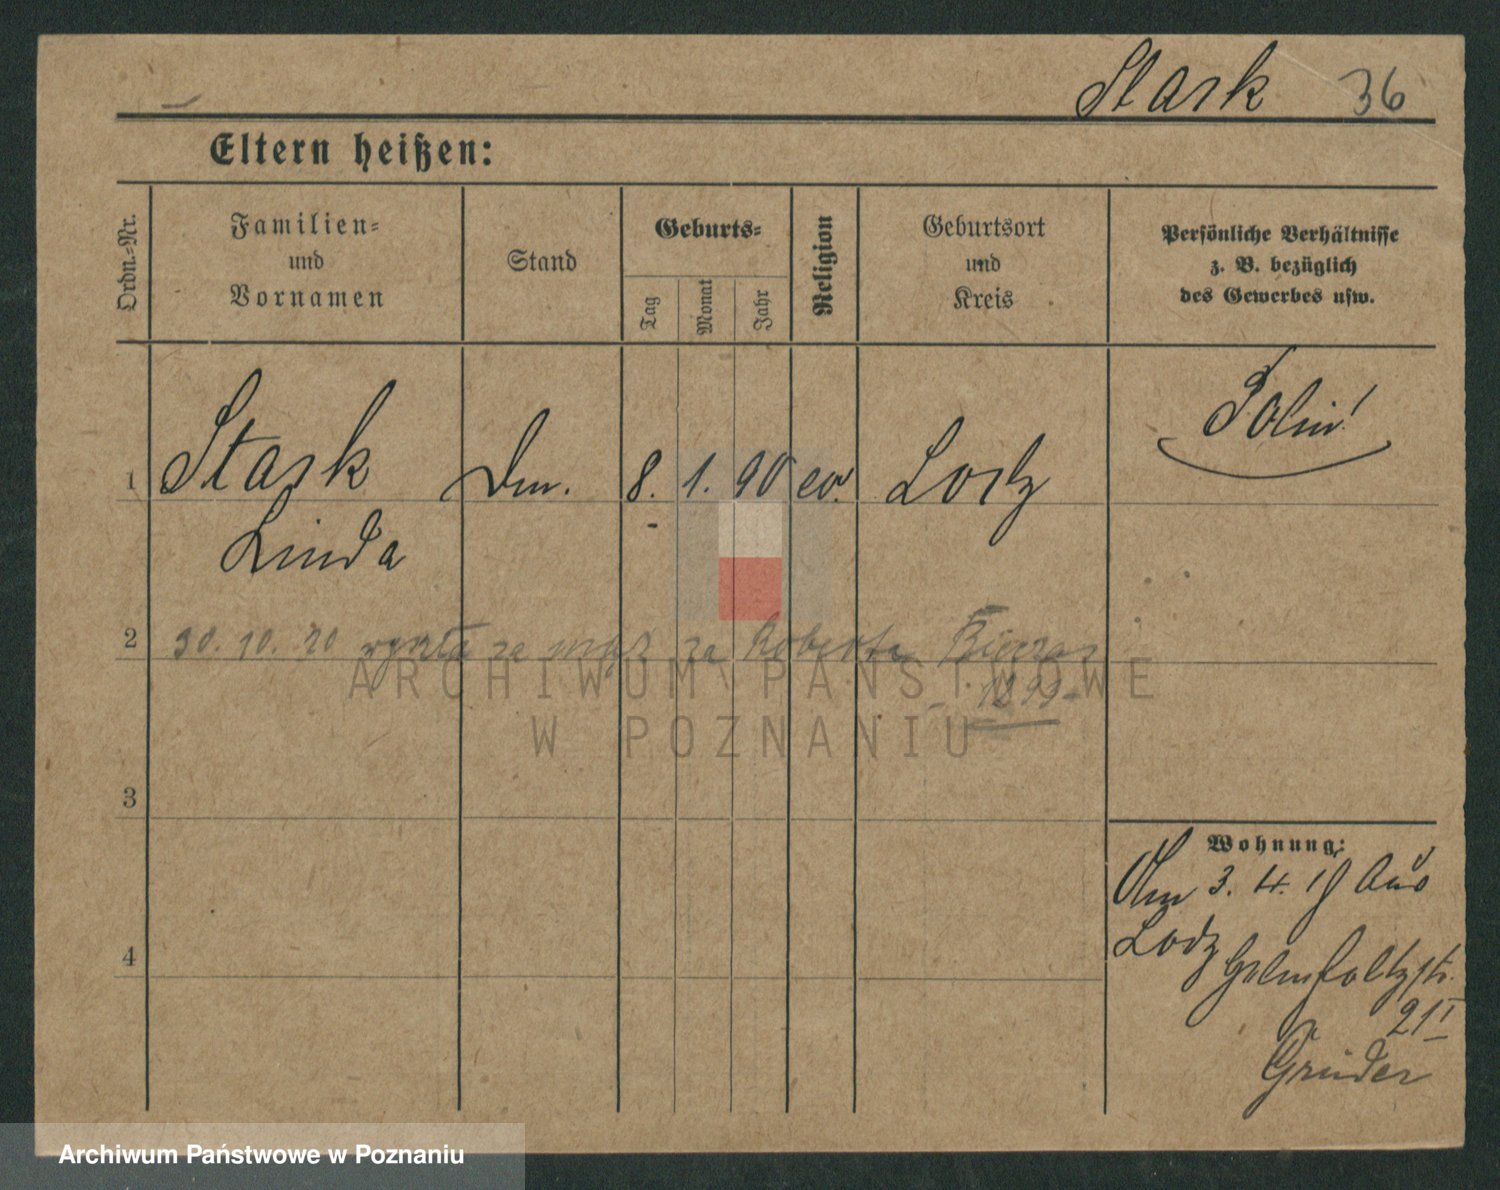 Stark 36
Eltern heißen:
Ordn.-Nr.
Familien-
und
Vornamen
Stand
Geburts-
Tag
Monat
Jahr
Religion
Geburtsort
und
Kreis
Persönliche Verhältnisse
z. B. bezüglich
des Gewerbes usw.
1 Stark 8. 1. 90 ev. Lodz
Polin!
Linda
2 30. 10. 20 wyszła za mąż za Roberta
1899
ARCHIWUM PAŃSTWOWE
W POZNANIU
3
Wohnung:
3. 4. Aus
Lodz
21 I
4
Archiwum Państwowe w Poznaniu